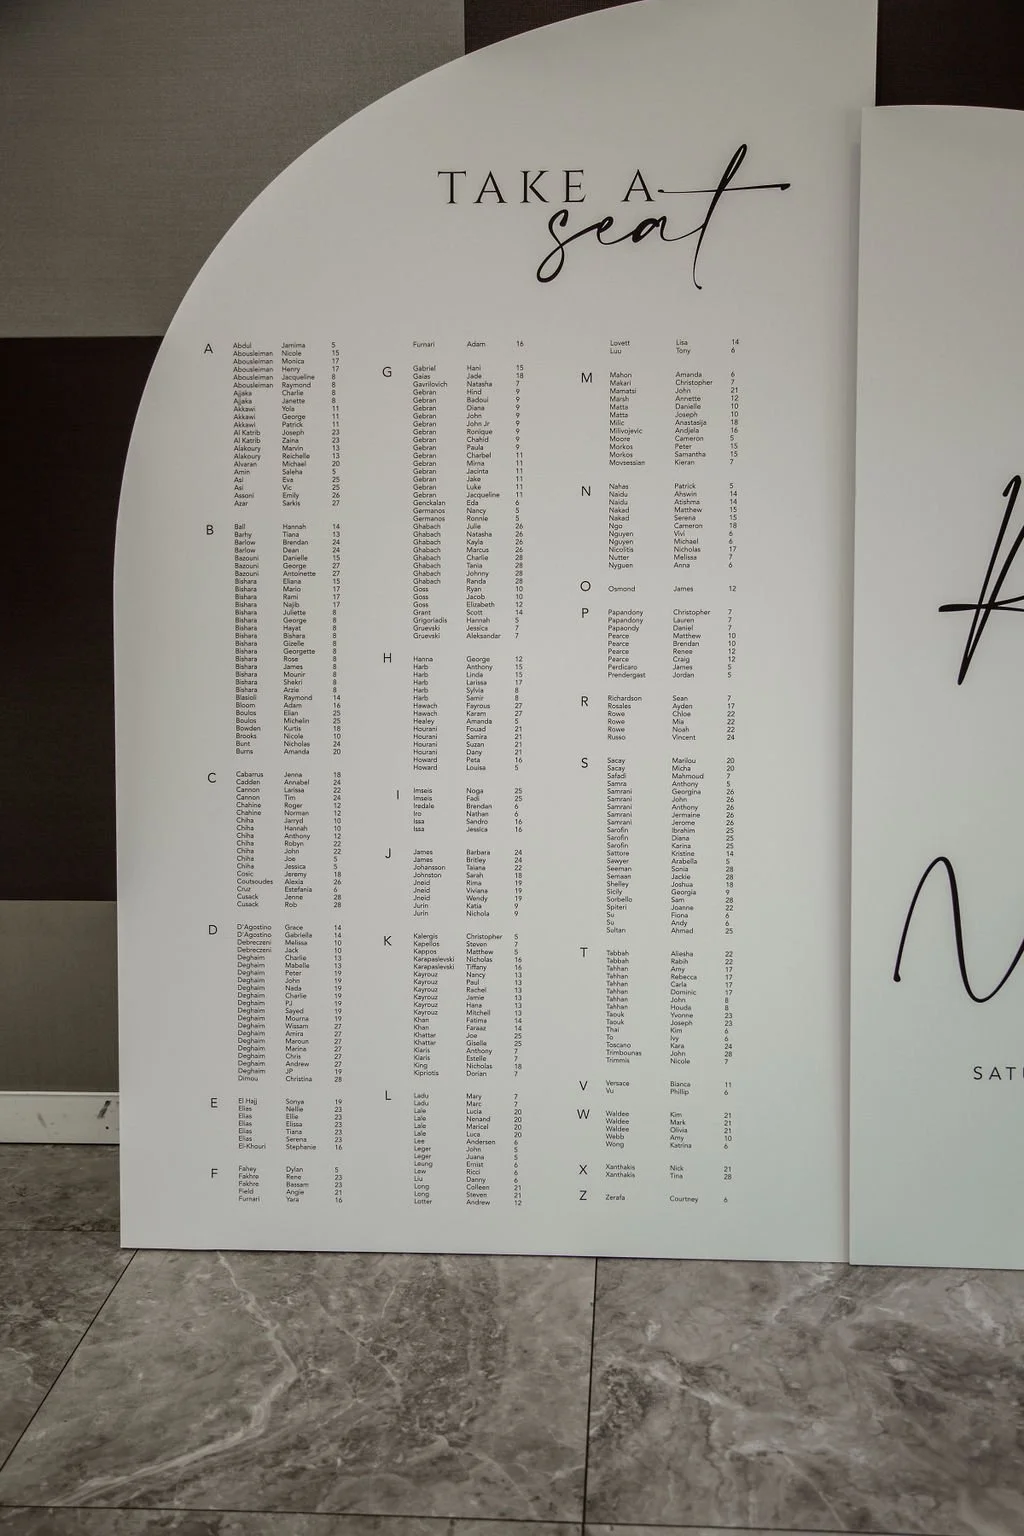 TAKE A
seat
A
Abdul Jamima 5
Abousleiman Nicole 15
Abousleiman Monica 17
Abousleiman Henry 17
Abousleiman Jacqueline 8
Abousleiman Raymond 8
Ajjaka Charlie 8
Ajjaka Janette 8
Akkawi Yola 11
Akkawi George 11
Akkawi Patrick 11
Al Katrib Joseph 23
Al Katrib Zaina 23
Alakoury Marvin 13
Alakoury Reichelle 13
Alvaran Michael 20
Amin Saleha 5
Asi Eva 25
Asi Vic 25
Assoni Emily 26
Azar Sarkis 27
B
Ball Hannah 14
Barhy Tiana 13
Barlow Brendan 24
Barlow Dean 24
Bazouni Danielle 15
Bazouni George 27
Bazouni Antoinette 27
Bishara Eliana 15
Bishara Mario 17
Bishara Rami 17
Bishara Najib 17
Bishara Juliette 8
Bishara George 8
Bishara Hayat 8
Bishara Bishara 8
Bishara Gizelle 8
Bishara Georgette 8
Bishara Rose 8
Bishara James 8
Bishara Mounir 8
Bishara Shekri 8
Bishara Arzie 8
Blasioli Raymond 14
Bloom Adam 16
Boulos Elian 25
Boulos Michelin 25
Bowden Kurtis 18
Brooks Nicole 10
Bunt Nicholas 24
Burns Amanda 20
C
Cabarrus Jenna 18
Cadden Annabel 24
Cannon Larissa 22
Cannon Tim 24
Chahine Roger 12
Chahine Norman 12
Chiha Jarryd 10
Chiha Hannah 10
Chiha Anthony 12
Chiha Robyn 22
Chiha John 22
Chiha Joe 5
Chiha Jessica 5
Cosic Jeremy 18
Coutsoudes Alexia 26
Cruz Estefania 6
Cusack Jenne 28
Cusack Rob 28
D
D'Agostino Grace 14
D'Agostino Gabriella 14
Debreczeni Melissa 10
Debreczeni Jack 10
Deghaim Charlie 13
Deghaim Mabelle 13
Deghaim Peter 19
Deghaim John 19
Deghaim Nada 19
Deghaim Charlie 19
Deghaim PJ 19
Deghaim Sayed 19
Deghaim Mourna 19
Deghaim Wissam 27
Deghaim Amira 27
Deghaim Maroun 27
Deghaim Marina 27
Deghaim Chris 27
Deghaim Andrew 27
Deghaim JP 19
Dimou Christina 28
E
El Hajj Sonya 19
Elias Nellie 23
Elias Ellie 23
Elias Elissa 23
Elias Tiana 23
Elias Serena 23
El-Khouri Stephanie 16
F
Fahey Dylan 5
Fakhre Rene 23
Fakhre Bassam 23
Field Angie 21
Furnari Yara 16
Furnari Adam 16
G
Gabriel Hani 15
Gaias Jade 18
Gavrilovich Natasha 7
Gebran Hind 9
Gebran Badoui 9
Gebran Diana 9
Gebran John 9
Gebran John Jr 9
Gebran Ronique 9
Gebran Chahid 9
Gebran Paula 9
Gebran Charbel 11
Gebran Mirna 11
Gebran Jacinta 11
Gebran Jake 11
Gebran Luke 11
Gebran Jacqueline 11
Genckalan Eda 6
Germanos Nancy 5
Germanos Ronnie 5
Ghabach Julie 26
Ghabach Natasha 26
Ghabach Kayla 26
Ghabach Marcus 26
Ghabach Charlie 28
Ghabach Tania 28
Ghabach Johnny 28
Ghabach Randa 28
Goss Ryan 10
Goss Jacob 10
Goss Elizabeth 12
Grant Scott 14
Grigoriadis Hannah 5
Gruevski Jessica 7
Gruevski Aleksandar 7
H
Hanna George 12
Harb Anthony 15
Harb Linda 15
Harb Larissa 17
Harb Sylvia 8
Harb Samir 8
Hawach Fayrous 27
Hawach Karam 27
Healey Amanda 5
Hourani Fouad 21
Hourani Samira 21
Hourani Suzan 21
Hourani Dany 21
Howard Peta 16
Howard Louisa 5
I
Imseis Noga 25
Imseis Fadi 25
Iredale Brendan 6
Iro Nathan 6
Issa Sandro 16
Issa Jessica 16
J
James Barbara 24
James Britley 24
Johansson Taiana 22
Johnston Sarah 18
Jneid Rima 19
Jneid Viviana 19
Jneid Wendy 19
Jurin Katia 9
Jurin Nichola 9
K
Kalergis Christopher 5
Kapellos Steven 7
Kappos Matthew 5
Karapaslevski Nicholas 16
Karapaslevski Tiffany 16
Kayrouz Nancy 13
Kayrouz Paul 13
Kayrouz Rachel 13
Kayrouz Jamie 13
Kayrouz Hana 13
Kayrouz Mitchell 13
Khan Fatima 14
Khan Faraaz 14
Khattar Joe 25
Khattar Giselle 25
Kiaris Anthony 7
Kiaris Estelle 7
King Nicholas 18
Kipriotis Dorian 7
L
Ladu Mary 7
Ladu Marc 7
Lale Lucia 20
Lale Nenand 20
Lale Maricel 20
Lale Luca 20
Lee Andersen 6
Leger John 5
Leger Juana 5
Leung Ernist 6
Lew Ricci 6
Liu Danny 6
Long Colleen 21
Long Steven 21
Lotter Andrew 12
Lovett Lisa 14
Luu Tony 6
M
Mahon Amanda 6
Makari Christopher 7
Mamatsi John 21
Marsh Annette 12
Matta Danielle 10
Matta Joseph 10
Milic Anastasija 18
Milivojevic Andjela 16
Moore Cameron 5
Morkos Peter 15
Morkos Samantha 15
Movsessian Kieran 7
N
Nahas Patrick 5
Naidu Ahswin 14
Naidu Atishma 14
Nakad Matthew 15
Nakad Serena 15
Ngo Cameron 18
Nguyen Vivi 6
Nguyen Michael 6
Nicolitis Nicholas 17
Nutter Melissa 7
Nyguen Anna 6
O
Osmond James 12
P
Papandony Christopher 7
Papandony Lauren 7
Papaondy Daniel 7
Pearce Matthew 10
Pearce Brendan 10
Pearce Renee 12
Pearce Craig 12
Perdicaro James 5
Prendergast Jordan 5
R
Richardson Sean 7
Rosales Ayden 17
Rowe Chloe 22
Rowe Mia 22
Rowe Noah 22
Russo Vincent 24
S
Sacay Marilou 20
Sacay Micha 20
Safadi Mahmoud 7
Samra Anthony 5
Samrani Georgina 26
Samrani John 26
Samrani Anthony 26
Samrani Jermaine 26
Samrani Jerome 26
Sarofin Ibrahim 25
Sarofin Diana 25
Sarofin Karina 25
Sattore Kristine 14
Sawyer Arabella 5
Seeman Sonia 28
Semaan Jackie 28
Shelley Joshua 18
Sicily Georgia 9
Sorbello Sam 28
Spiteri Joanne 22
Su Fiona 6
Su Andy 6
Sultan Ahmad 25
T
Tabbah Aliesha 22
Tabbah Rabih 22
Tahhan Amy 17
Tahhan Rebecca 17
Tahhan Carla 17
Tahhan Dominic 17
Tahhan John 8
Tahhan Houda 8
Taouk Yvonne 23
Taouk Joseph 23
Thai Kim 6
To Ivy 6
Toscano Kara 24
Trimbounas John 28
Trimmis Nicole 7
V
Versace Bianca 11
Vu Phillip 6
W
Waldee Kim 21
Waldee Mark 21
Waldee Olivia 21
Webb Amy 10
Wong Katrina 6
X
Xanthakis Nick 21
Xanthakis Tina 28
Z
Zerafa Courtney 6
SATU